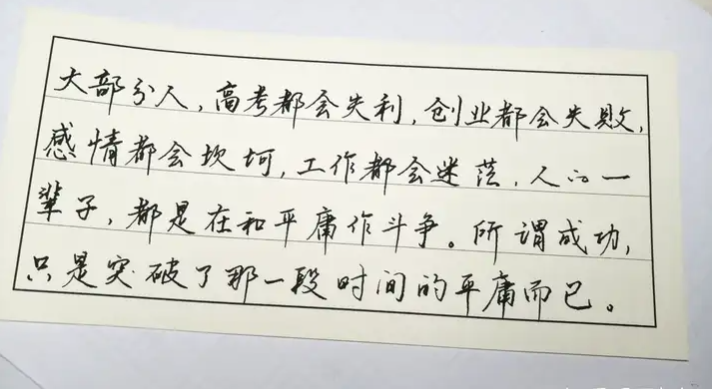 大部分人，高考都会失利，创业都会失败，
感情都会坎坷，工作都会迷茫，人的一
辈子，都是在和平庸作斗争。所谓成功，
只是突破了那一段时间的平庸而已。